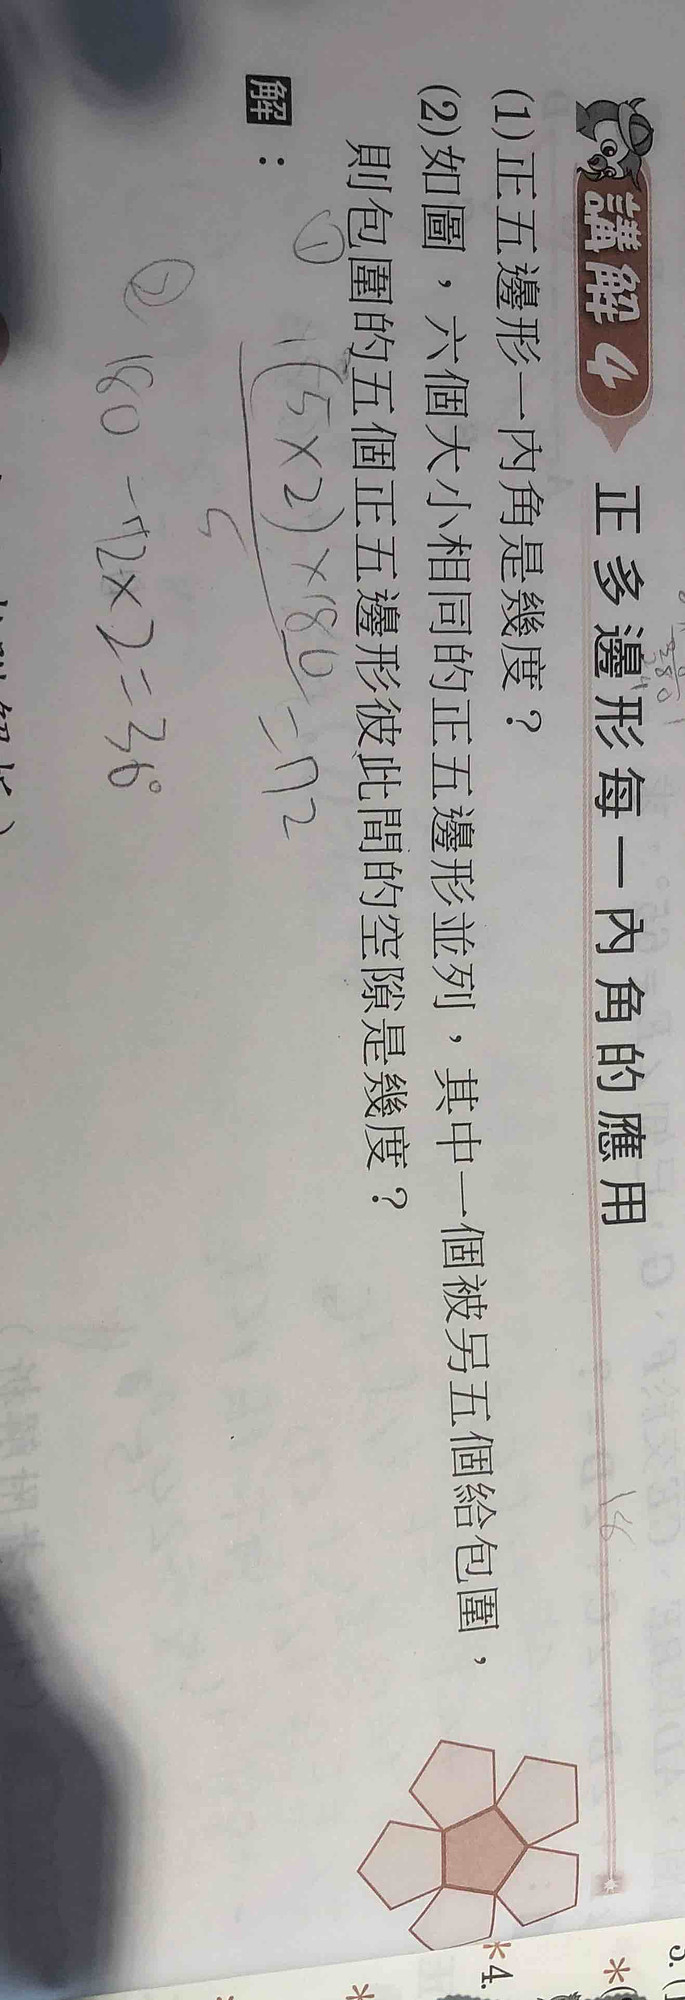 講解4 正多邊形每一內角的應用
(1)正五邊形一內角是幾度？
(2)如圖，六個大小相同的正五邊形並列，其中一個被另五個給包圍，
則包圍的五個正五邊形彼此間的空隙是幾度？
解：
① (5×2)×180 = 72
5
② 180-72×2=36°
*4.